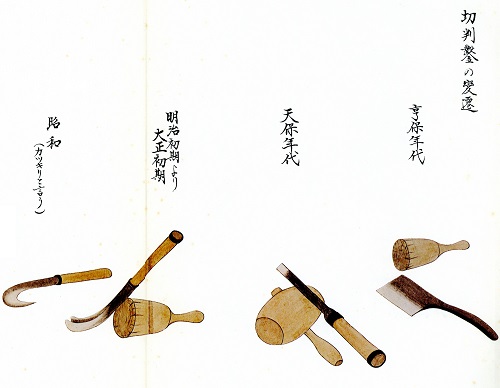 切判鑿の変遷
享保年代
天保年代
明治初期より
大正初期
昭和
(カツキリと言う)